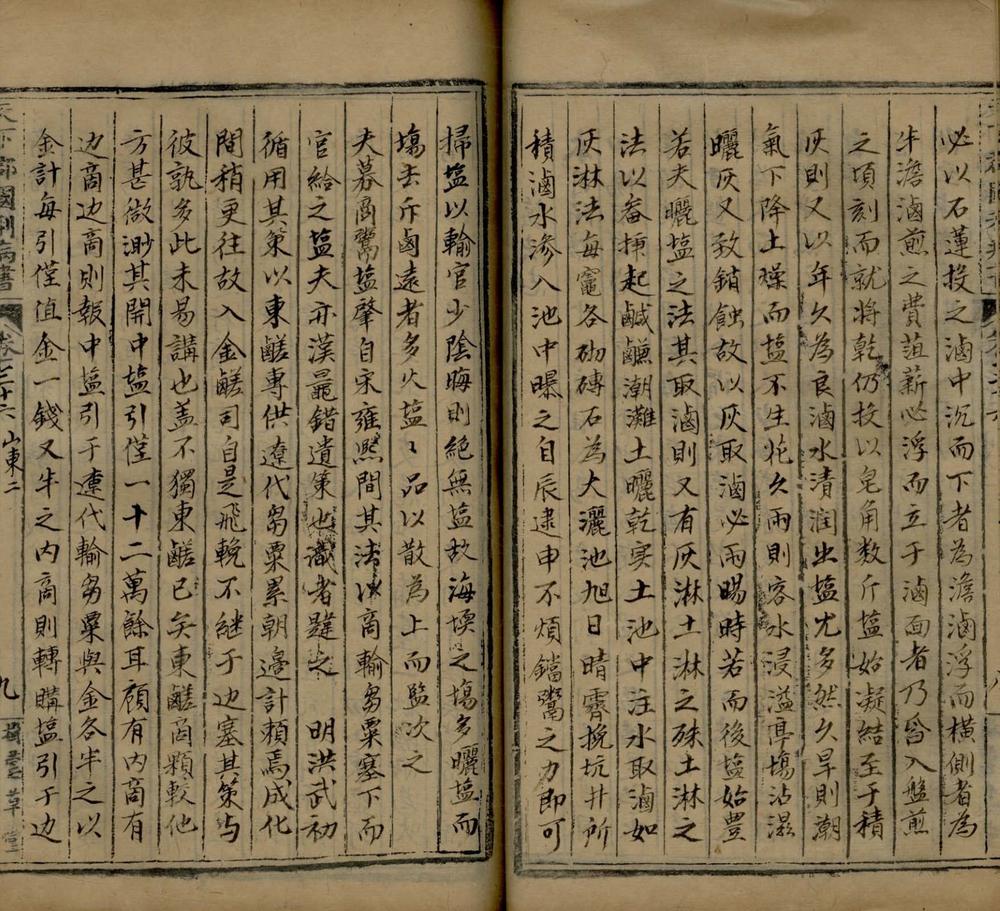 必以石蓮投之滷中沉而下者為澹滷浮而橫側者為
半澹滷煎之費薪必浮而立于滷面者乃曾入盤煎
之頃刻而就將乾仍投以皂角数斤塩始凝結至于積
灰則又以年久為良滷水漬润出塩尤多然久旱則潮
氣下降土燥而塩不生花久雨則客水浸溢亭塲沾濕
曬灰又致銷蝕故以灰取滷必雨暘時若而後塩始豊
若夫曬塩之法其取滷則又有灰淋土淋之殊土淋之
法以畚挿起鹹鹻潮灘土曬乾实土池中注水取滷如
灰淋法每竈各砌磚石為大灑池旭日晴霽挽坑井所
積滷水滲入池中曝之自辰逮申不煩鐺鬵之力即可
天下郡國利病書
卷之三十六
山東二
九
掃塩以輸官少陰晦則絕無塩故海堧之塲多曬塩而
塲去斥鹵遠者多火塩〻品以散為上而監次之
夫募商鬻塩肇自宋雍熙間其法以商輸芻粟塞下而
官給之塩夫亦漢鼂錯遺策也識者韙之 明洪武初
循用其策以東鹺專供遼代芻粟累朝邊計頼焉成化
間稍更往故入金鹺司自是飛輓不継于边塞其策与
彼孰多此未易講也盖不獨東鹺已矣東鹺啇顆較他
方甚微渺其開中塩引僅一十二萬餘耳顧有内啇有
边商边商則報中塩引于遼代輸芻粟與金各半之以
金計每引僅值金一錢又半之内商則轉購塩引于边